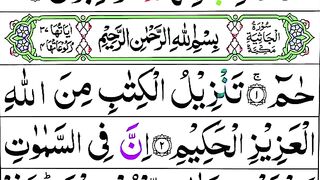 سُوْرَةُ الْجَاثِيَةِ مَكِّيَّةٌ
بِسْمِ اللّٰهِ الرَّحْمٰنِ الرَّحِيْمِ
اٰيَاتُهَا ٣٧ رُكُوْعَاتُهَا ٤
حٰمٓ ۚ ﴿١﴾ تَنْزِيْلُ الْكِتٰبِ مِنَ اللّٰهِ
الْعَزِيْزِ الْحَكِيْمِ ﴿٢﴾ اِنَّ فِى السَّمٰوٰتِ